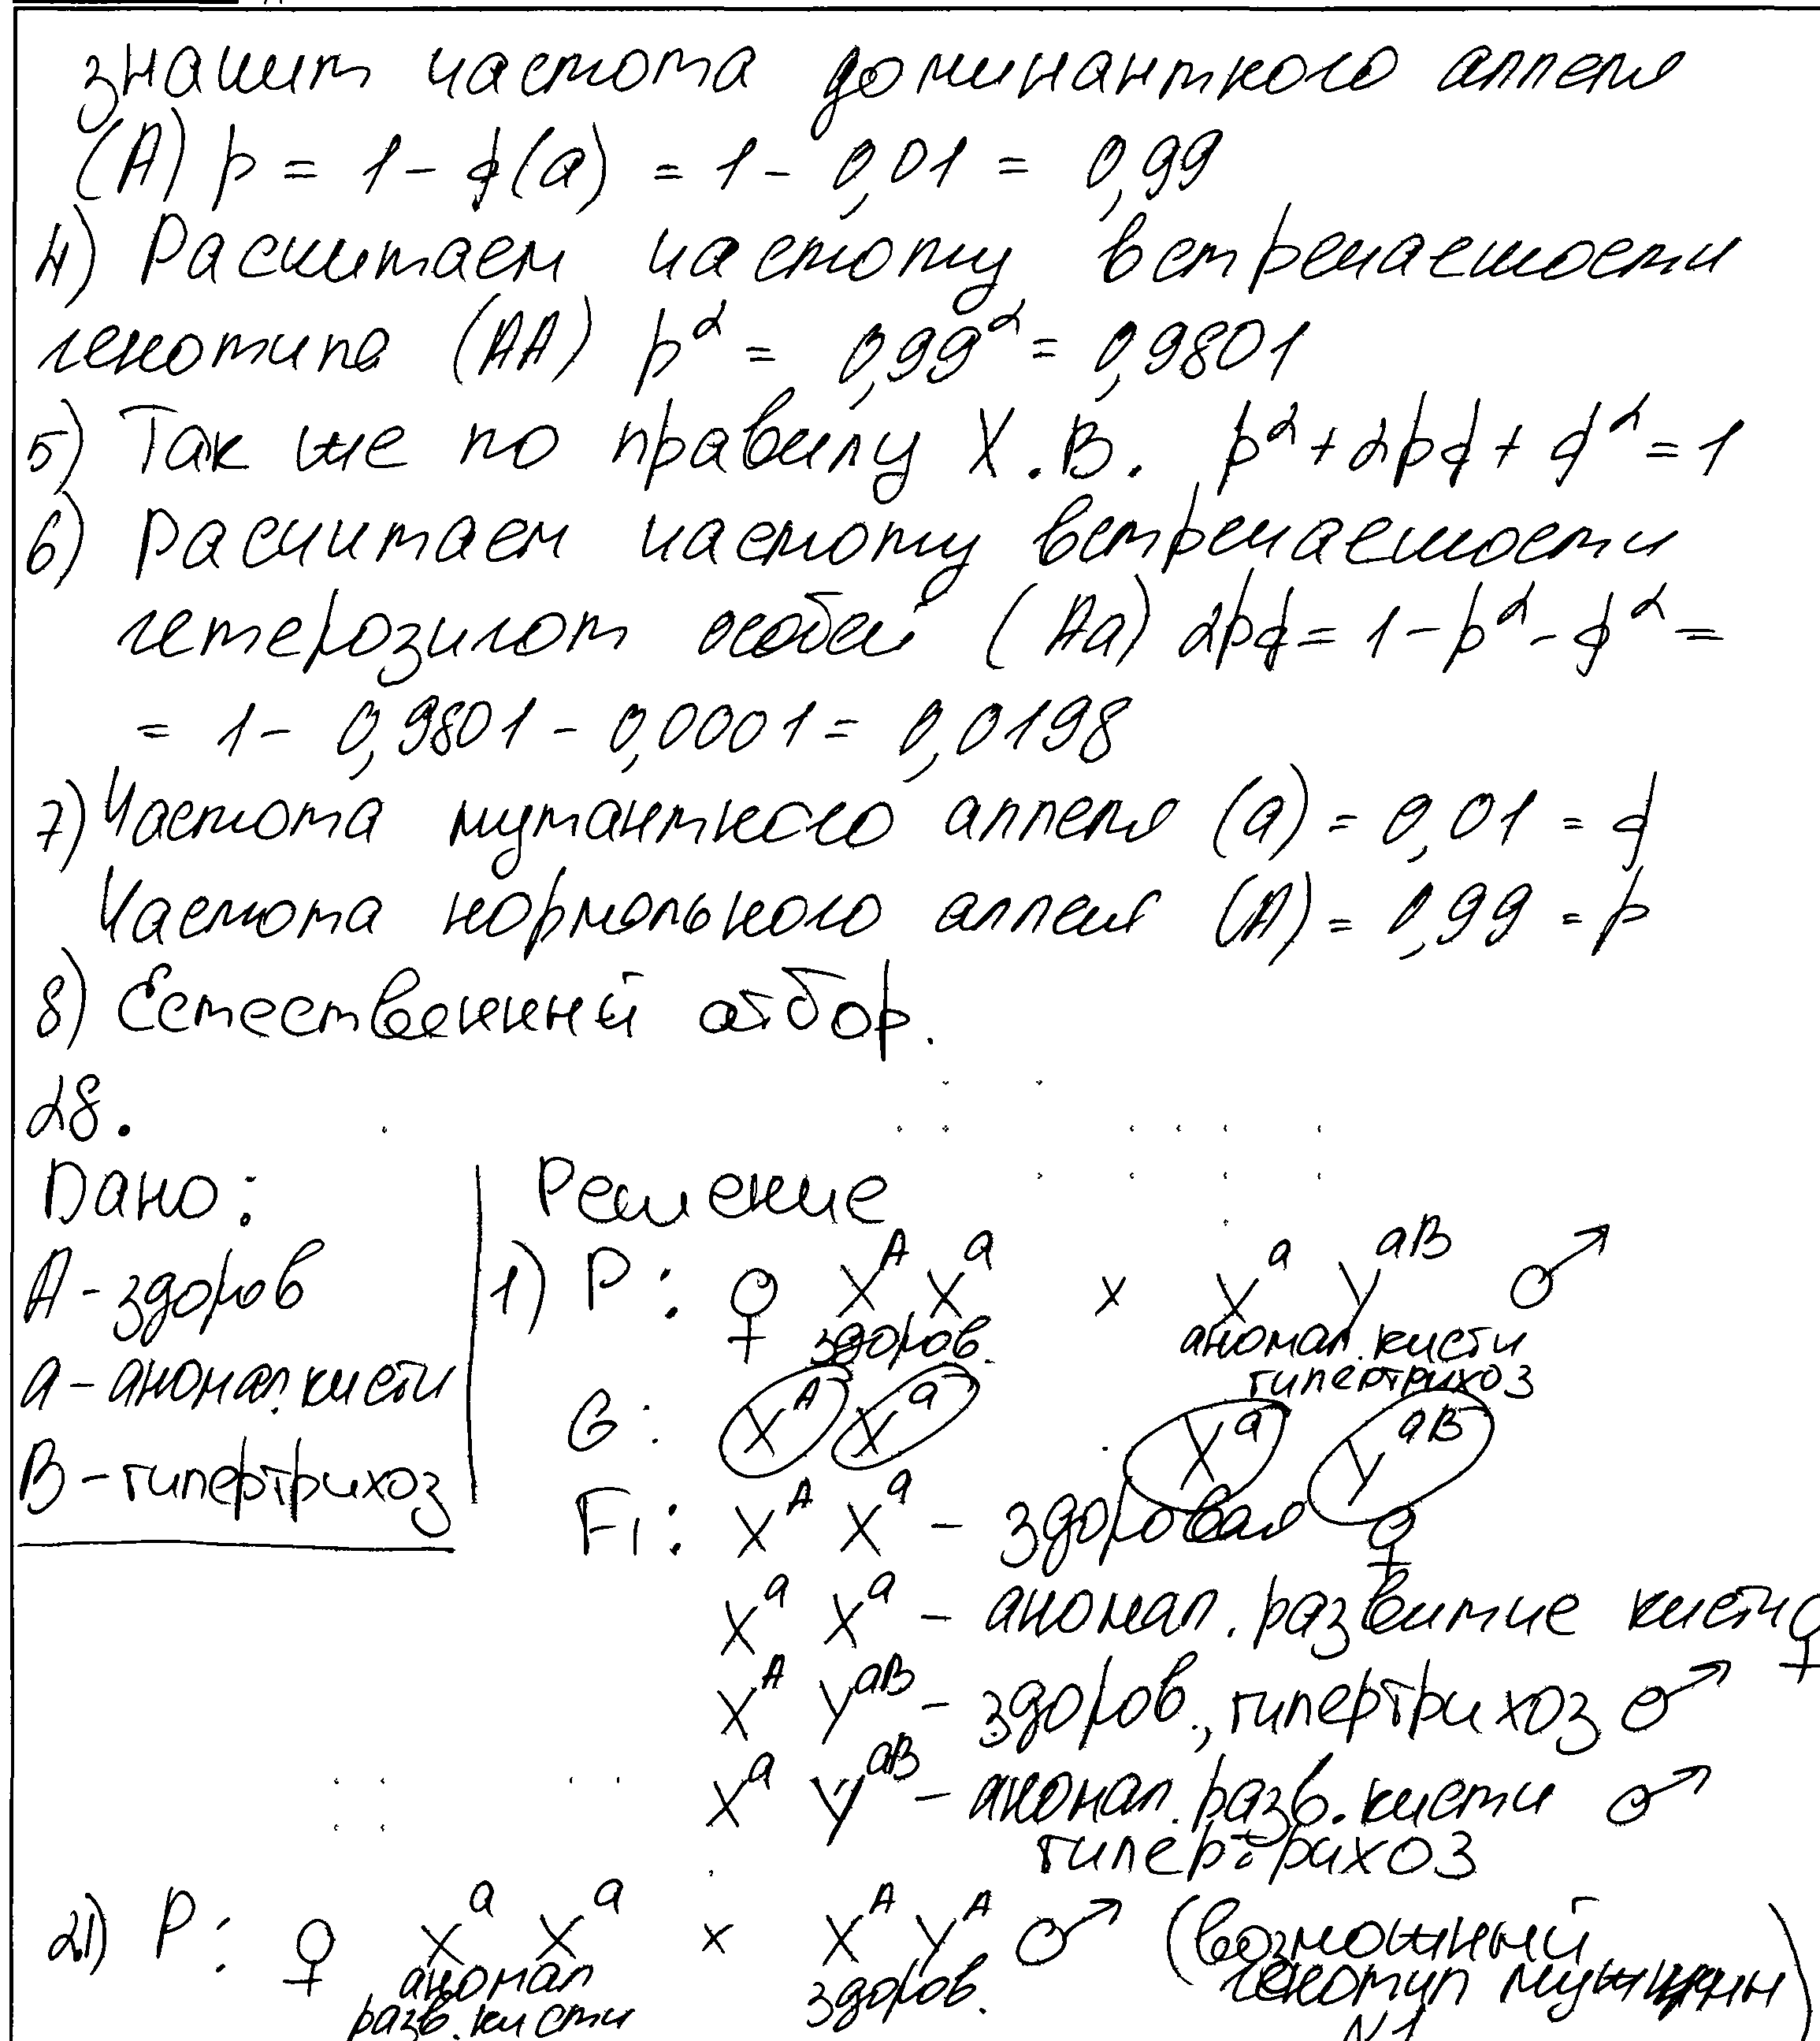 значит частота доминантного аллеля
(A) p = 1 - q(a) = 1 - 0,01 = 0,99
4) Расчитаем частоту встречаемости
генотипа (AA) p² = 0,99² = 0,9801
5) Так же по правилу Х.В. p² + 2pq + q² = 1
6) Расчитаем частоту встречаемости
гетерозигот особей (Aa) 2pq = 1 - p² - q² =
= 1 - 0,9801 - 0,0001 = 0,0198
7) Частота мутантного аллеля (a) = 0,01 = q
Частота нормального аллеля (A) = 0,99 = p
8) Естественный отбор.
28.
Дано:
A - здоров
a - аномал. кисти
B - гипертрихоз
Решение
1) P: ♀ X^A X^a × X^a Y^aB ♂
здоров. аномал. кисти
гипертрихоз
G: X^A X^a X^a Y^aB
F1: X^A X^a - здоровая ♀
X^a X^a - аномал. развитие кисти ♀
X^A Y^aB - здоров., гипертрихоз ♂
X^a Y^aB - аномал. разв. кисти ♂
гипертрихоз
2) P: ♀ X^a X^a × X^A Y^A ♂ (возможный
аномал здоров. генотип мужчины)
разв. кисти №1